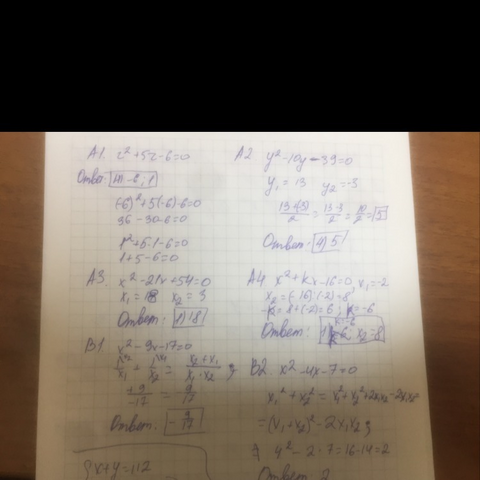 A1. x²+5x-6=0
Ответ:
(-6)²+5(-6)-6=0
36-30-6=0
1²+5·1-6=0
1+5-6=0
A2 y²-10y-39=0
y₁=13 y₂=-3
Ответ: 4) 5
A3. x²-21x+54=0
x₁=18 x₂=3
Ответ: 1) 18
A4 x²+kx-16=0, x₁=-2
x₂=(-16):(-2)=8
-k=8+(-2)=6; k=-6
Ответ: x₂=8
B1. x²-9x-17=0
x₂+x₁
x₁·x₂
+9/-17 = 9/17
Ответ: -9/17
B2. x²-4x-7=0
x₁²+x₂²=x₁²+x₂²+2x₁x₂-2x₁x₂=
=(x₁+x₂)²-2x₁x₂
4²-2·7=16-14=2
Ответ: 2
{x+y=112